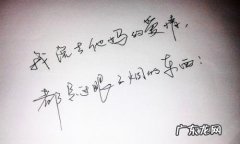 我说去他妈的爱情,
都是过眼云烟的东西:
广东龙网